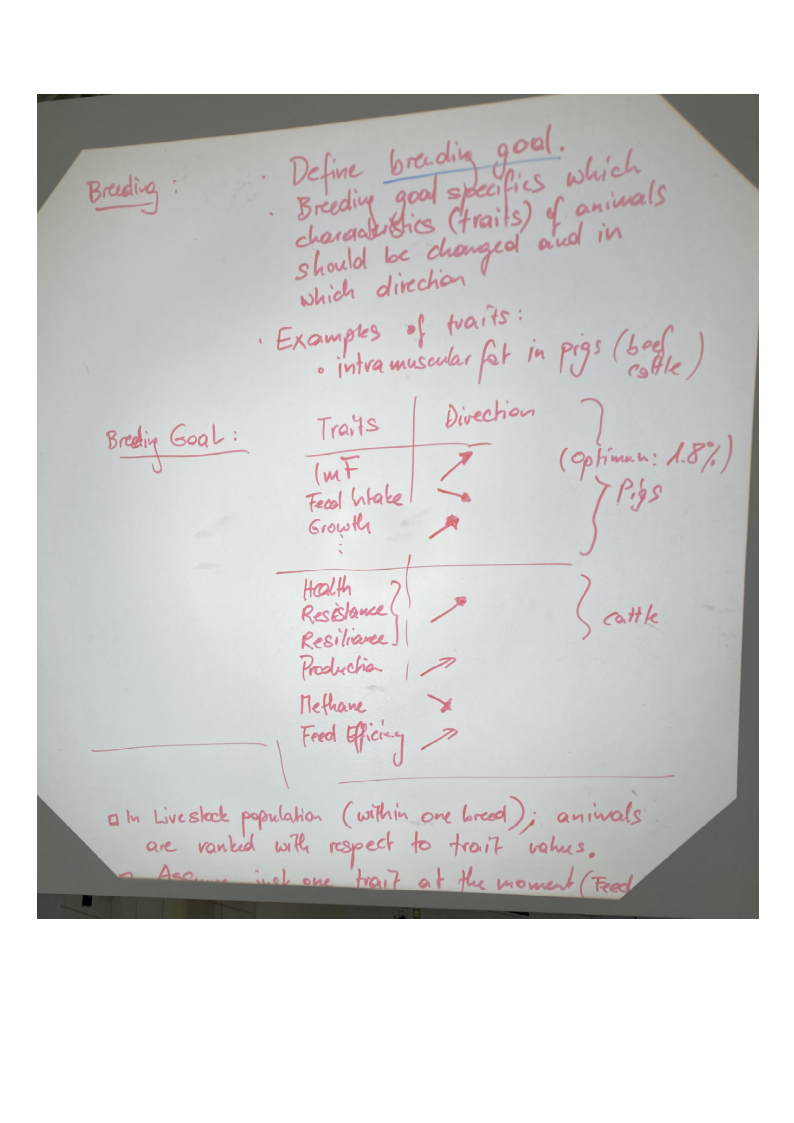 Breeding : · Define breeding goal.
· Breeding goal specifics which
characteristics (traits) of animals
should be changed and in
which direction
· Examples of traits:
• intramuscular fat in pigs (beef
cattle)
Breeding Goal: Traits Direction
ImF ↗ (Optimum: 1.8%)
Feed Intake ↘ Pigs
Growth ↗
⋮
Health
Resistance ↗ cattle
Resiliance
Production ↗
Methane ↘
Feed Efficiency ↗
□ In Livestock population (within one breed); animals
are ranked with respect to trait values.
one trait at the moment (Feed